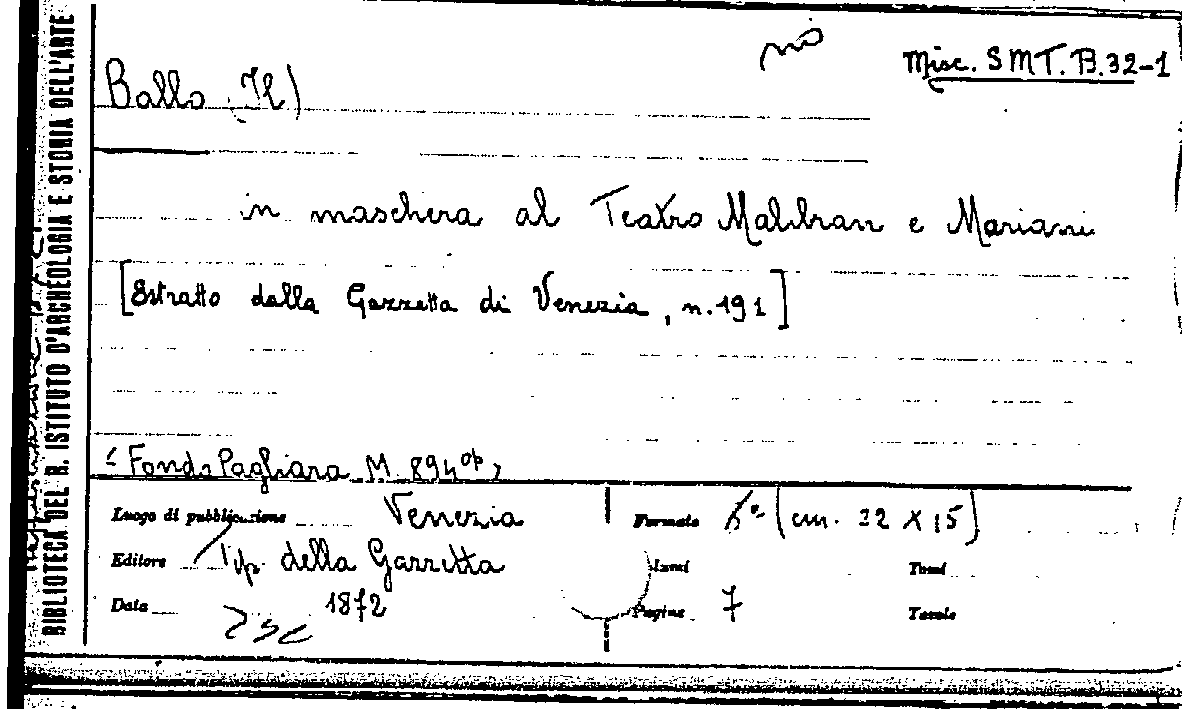 BIBLIOTECA DEL R. ISTITUTO D'ARCHEOLOGIA E STORIA DELL'ARTE
Misc. SMT.B.32-1
Ballo (Il)
in maschera al Teatro Malibran e Mariani
[Estratto dalla Gazzetta di Venezia, n.191]
Fondo Pagliara M. 894 op
Luogo di pubblicazione Venezia
Formato 8° (cm. 22 X 15)
Editore Tip. della Gazzetta
Tomi
Data 1872
Pagine 7
Tavole